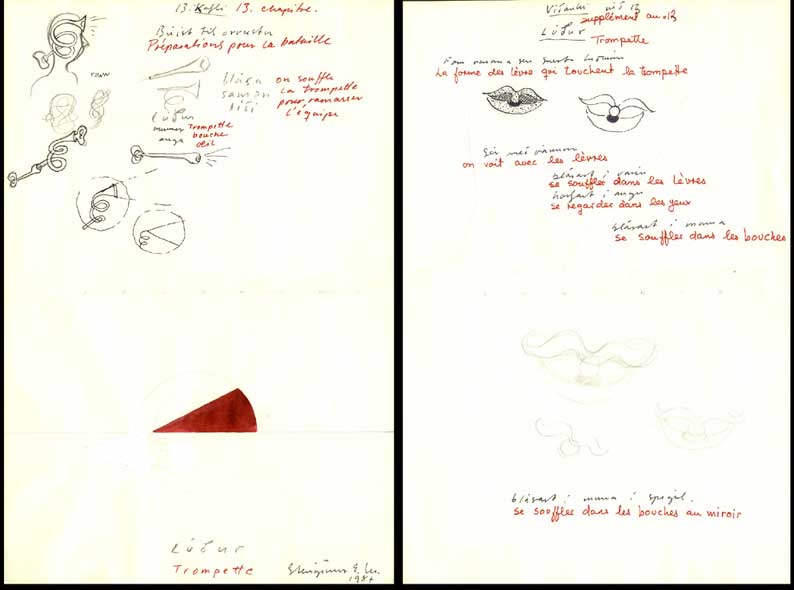 13. Kafli 13. chapitre.
Búist til orrustu
Préparations pour la bataille
Blása on souffle
saman la trompette
liði pour ramasser
l'équipe
Lúður
munnur Trompette
auga bouche
œil
Lúður
Trompette
1987
Viðauki við 13
supplément au 13
Lúður
Trompette
Form varanna sem snerta lúðurinn
La forme des lèvre qui touchent la trompette
Séð með vörunum
on voit avec les lèvres
blásast í varir
se souffler dans les lèvres
horfast í augu
se regarder dans les yeux
blásast í munna
se souffler dans les bouches
blásast í munna í spegil.
se souffler dans les bouches au miroir